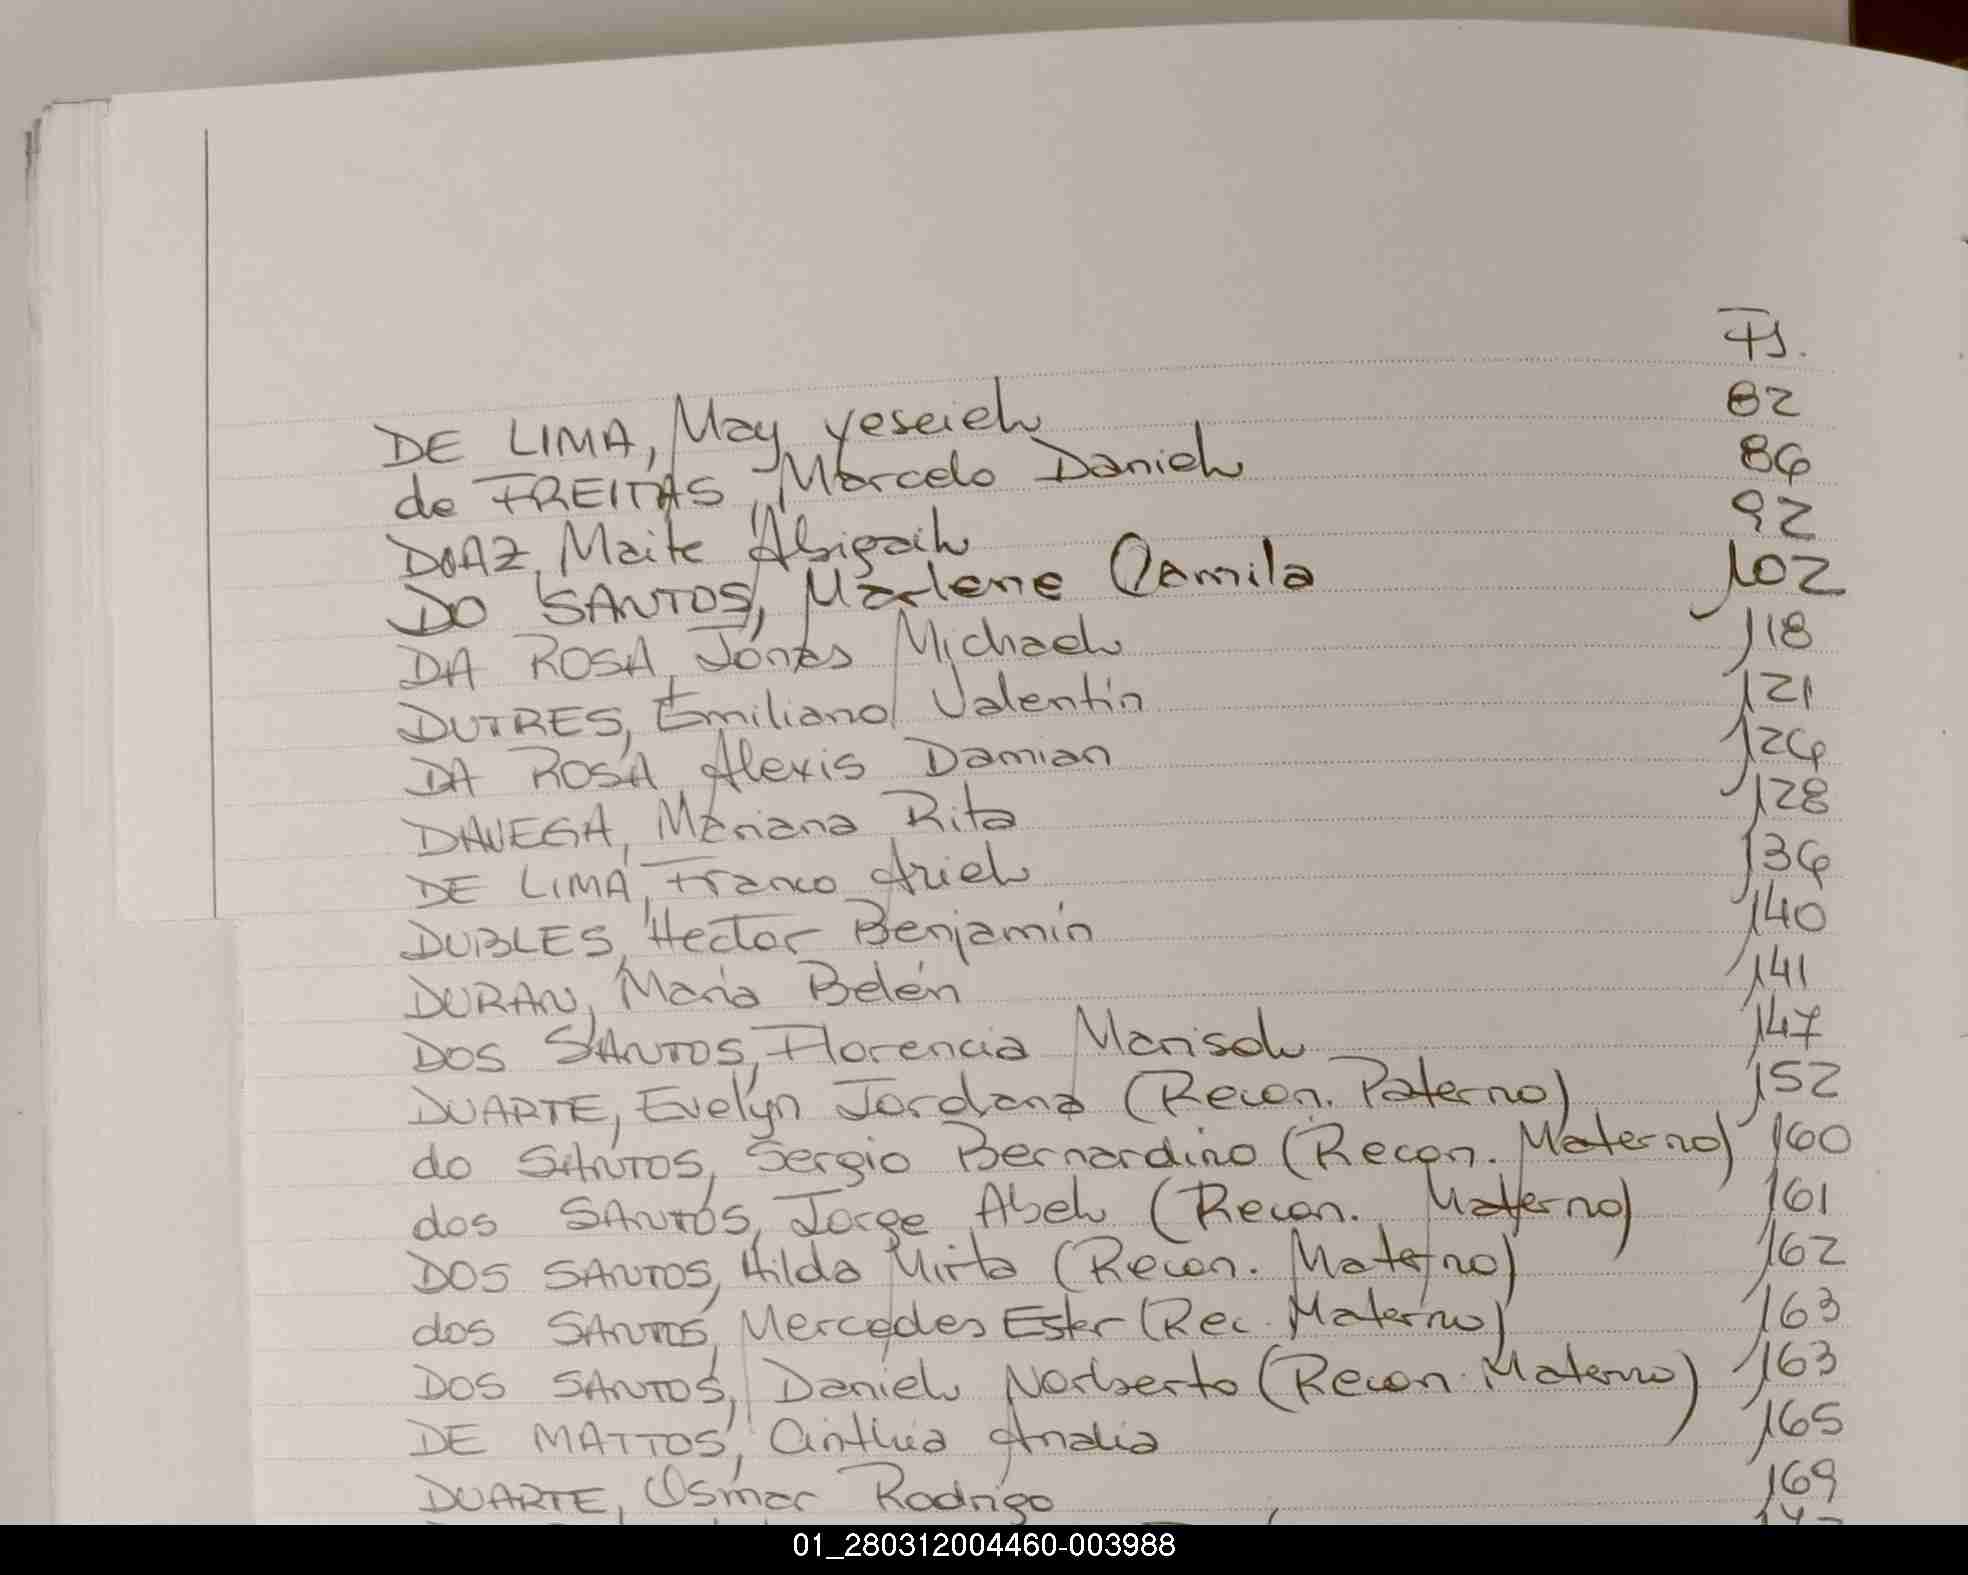 Fs.
DE LIMA, May yeseiel 82
de FREITAS, Marcelo Daniel 84
DIAZ, Maite Abigail 92
DO SANTOS, Marlene Camila 102
DA ROSA, Jonas Michael 118
DUTRES, Emiliano Valentín 121
DA ROSA Alexis Damian 124
DAVEGA, Mariana Rita 128
DE LIMA, Franco Ariel 134
DUBLES, Hector Benjamín 140
DURAN, Maria Belén 141
DOS SANTOS, Florencia Marisol 147
DUARTE, Evelyn Jordana (Recon. Paterno) 152
do SANTOS, Sergio Bernardino (Recon. Materno) 160
dos SANTOS, Jorge Abel (Recon. Materno) 161
DOS SANTOS, Hilda Mirta (Recon. Materno) 162
dos SANTOS, Mercedes Ester (Rec. Materno) 163
DOS SANTOS, Daniel Norberto (Recon. Materno) 163
DE MATTOS, Cinthia Analia 165
DUARTE, Osmar Rodrigo 169
01_280312004460-003988